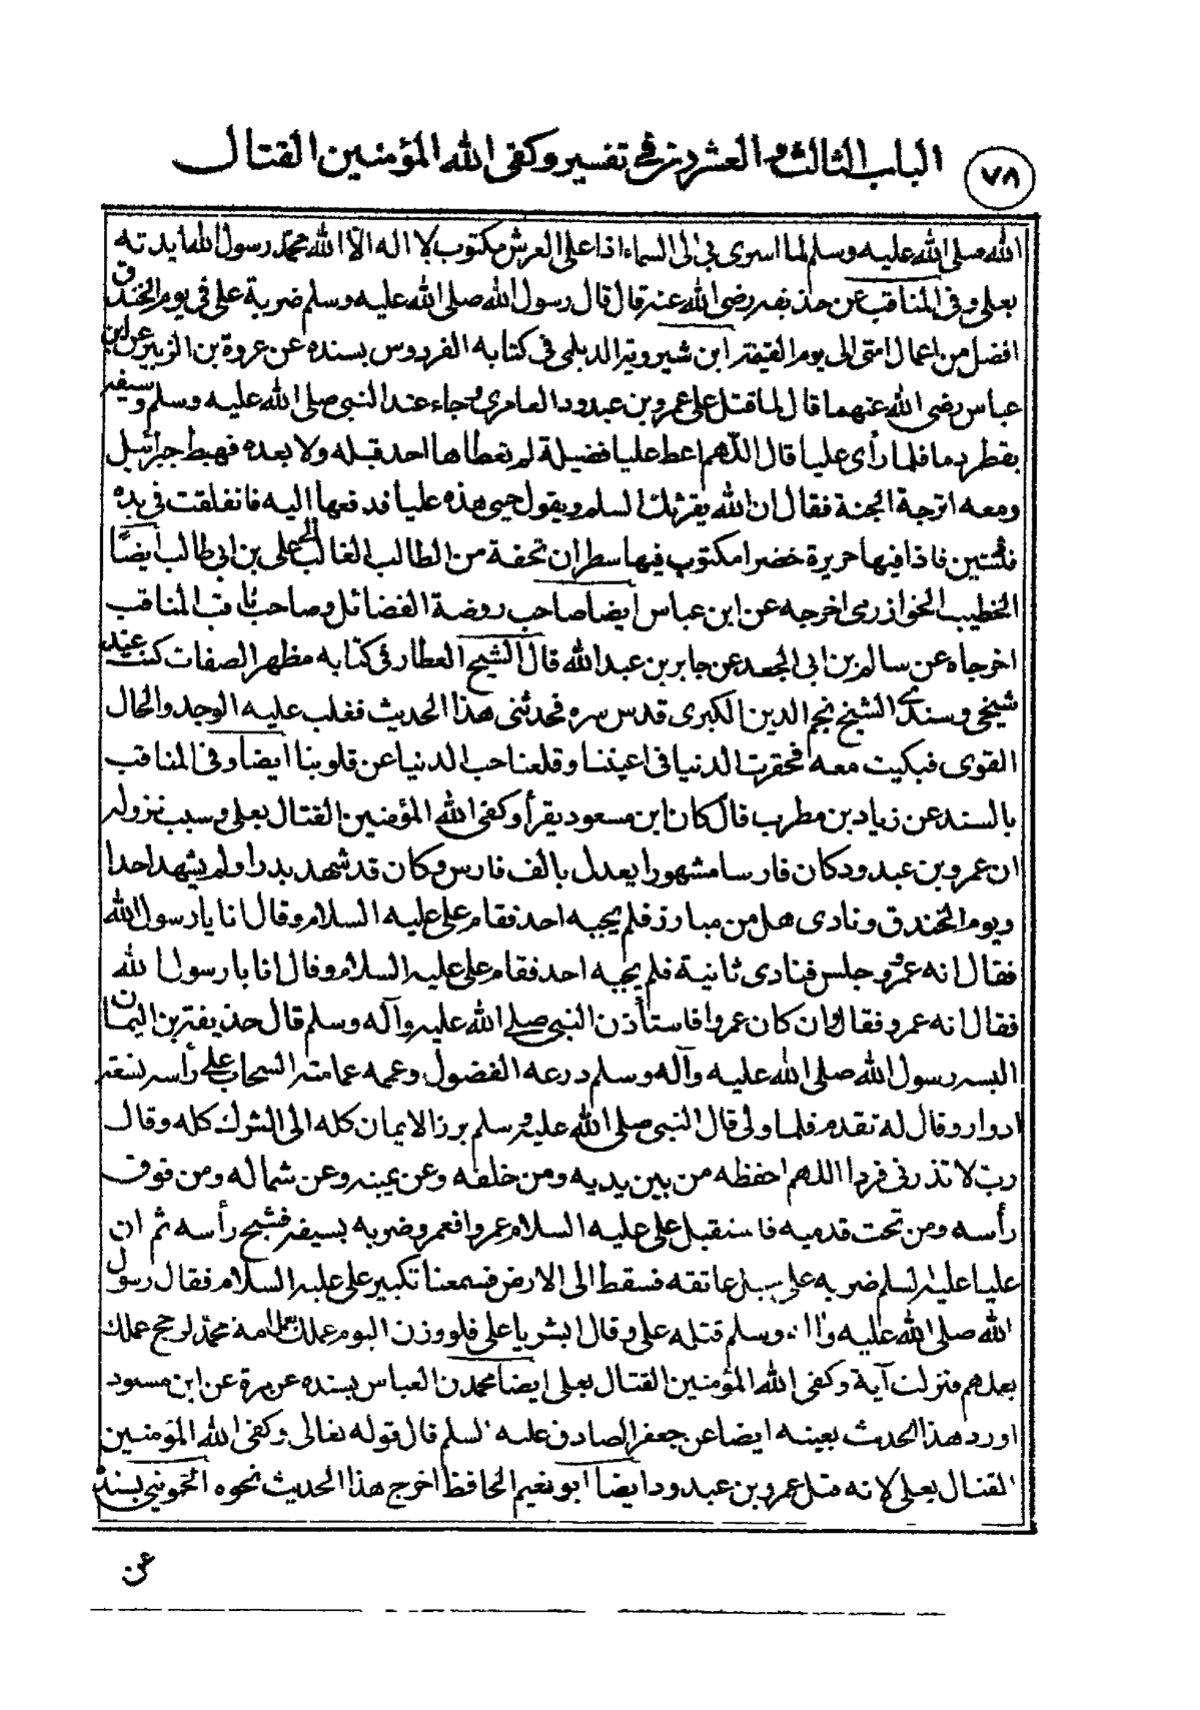 ٧٨
الباب الثالث والعشرون في تفسير وكفى الله المؤمنين القتال
الله صلى الله عليه وسلم لما اسرى بي الى السماء اذا على العرش مكتوب لا اله الا الله محمد رسول الله ايدته
بعلى وفي المناقب عن حذيفه رضى الله عنه قال قال رسول الله صلى الله عليه وسلم ضربة على في يوم الخندق
افضل من اعمال امتى الى يوم القيمة ابن شيرويه الديلمى في كتابه الفردوس بسنده عن عروة بن الزبير عن ابن
عباس رضى الله عنهما قال لما قتل على عمرو بن عبدود العامرى وجاء عند النبي صلى الله عليه وسلم وسيفه
يقطر دما فلما رأى عليا قال اللهم اعط عليا فضيلة لم تعطاها احد قبله ولا بعده فهبط جبرائيل
ومعه اترجة الجنة فقال ان الله يقرئك السلم ويقول حيى هذه عليا فدفعها اليه فانفلقت في يده
فلقتين فاذا فيها حريرة خضرا مكتوب فيها سطران تحفة من الطالب الغالب الى على بن ابى طالب ايضًا
الخطيب الخوارزمى اخرجه عن ابن عباس ايضا صاحب روضة الفضائل وصاحب ثاقب المناقب
اخرجاه عن سالم بن ابى الجعد عن جابر بن عبد الله قال الشيخ العطار في كتابه مظهر الصفات كنت عند
شيخى وسندى الشيخ نجم الدين الكبرى قدس سره فحدثنى هذا الحديث فغلب عليه الوجد والحال
القوى فبكيت معه فحقرت الدنيا في اعيننا وقلعنا حب الدنيا عن قلوبنا ايضا وفى المناقب
بالسند عن زياد بن مطرب قال كان ابن مسعود يقرأ وكفى الله المؤمنين القتال بعلى وسبب نزوله
ان عمرو بن عبدود كان فارسا مشهورا يعدل بالف فارس وكان قد شهد بدرا ولم يشهد احدا
ويوم الخندق ونادى هل من مبارز فلم يجبه احد فقام على عليه السلام وقال انا يا رسول الله
فقال انه عمرو وجلس فنادى ثانية فلم يجبه احد فقام على عليه السلام وقال انا يا رسول الله
فقال انه عمرو فقال وان كان عمروا فاستأذن النبي صلى الله عليه وآله وسلم قال حذيفة بن اليمان
البسه رسول الله صلى الله عليه وآله وسلم درعه الفضول وعممه عمامته السحاب على رأسه تسعة
ادوار وقال له تقدم فلما ولى قال النبي صلى الله عليه وسلم برز الايمان كله الى الشرك كله وقال
رب لا تذرنى فردا اللهم احفظه من بين يديه ومن خلفه وعن يمينه وعن شماله ومن فوق
رأسه ومن تحت قدميه فاستقبل على عليه السلام عمروا فعمرو ضربه بسيفه فشج رأسه ثم ان
عليا عليه السلم ضربه على حبل عاتقه فسقط الى الارض فسمعنا تكبير على عليه السلام فقال رسول
الله صلى الله عليه وآله وسلم قتله على وقال ابشر يا على فلو وزن اليوم عملك بعمل امة محمد لرجح عملك
بعملهم فنزلت آية وكفى الله المؤمنين القتال بعلى ايضا محمد بن العباس بسنده عن مرة عن ابن مسعود
اورد هذا الحديث بعينه ايضا عن جعفر الصادق عليه السلم قال قوله تعالى وكفى الله المؤمنين
القتال بعلى لانه قتل عمرو بن عبدود ايضا ابو نعيم الحافظ اخرج هذا الحديث نحوه الحموينى بسنده
عن